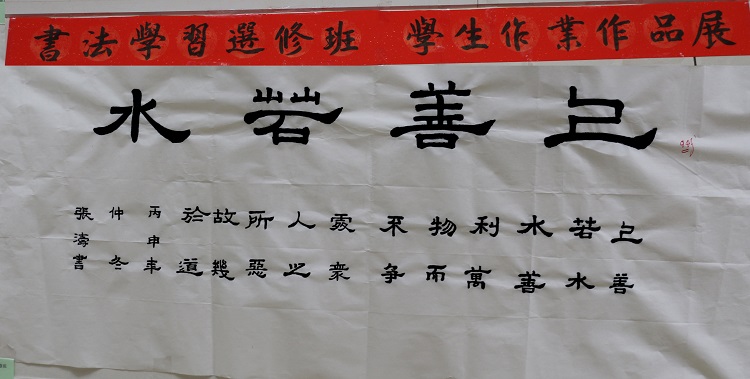 書法學習選修班 學生作業作品展
上善若水
上善
若水
水善
利萬
物而
不爭
處衆
人之
所惡
故幾
於道
丙申年
仲冬
張濤書